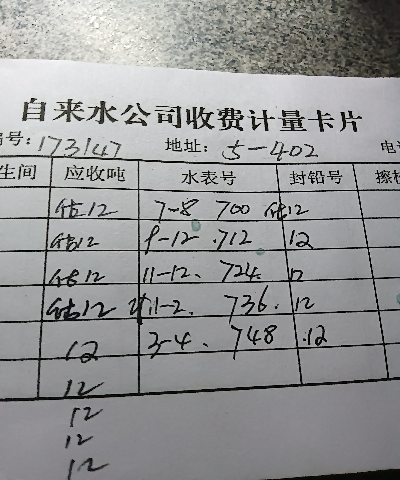 自来水公司收费计量卡片
编号: 173147 地址: 5-402 电
生间 应收吨 水表号 封铅号 擦
估12 7-8 700 估12
估12 9-12. 712 12
估12 11-12. 724. 12
估12 1-2. 736. 12
12 3-4. 748 .12
12
12
12
12